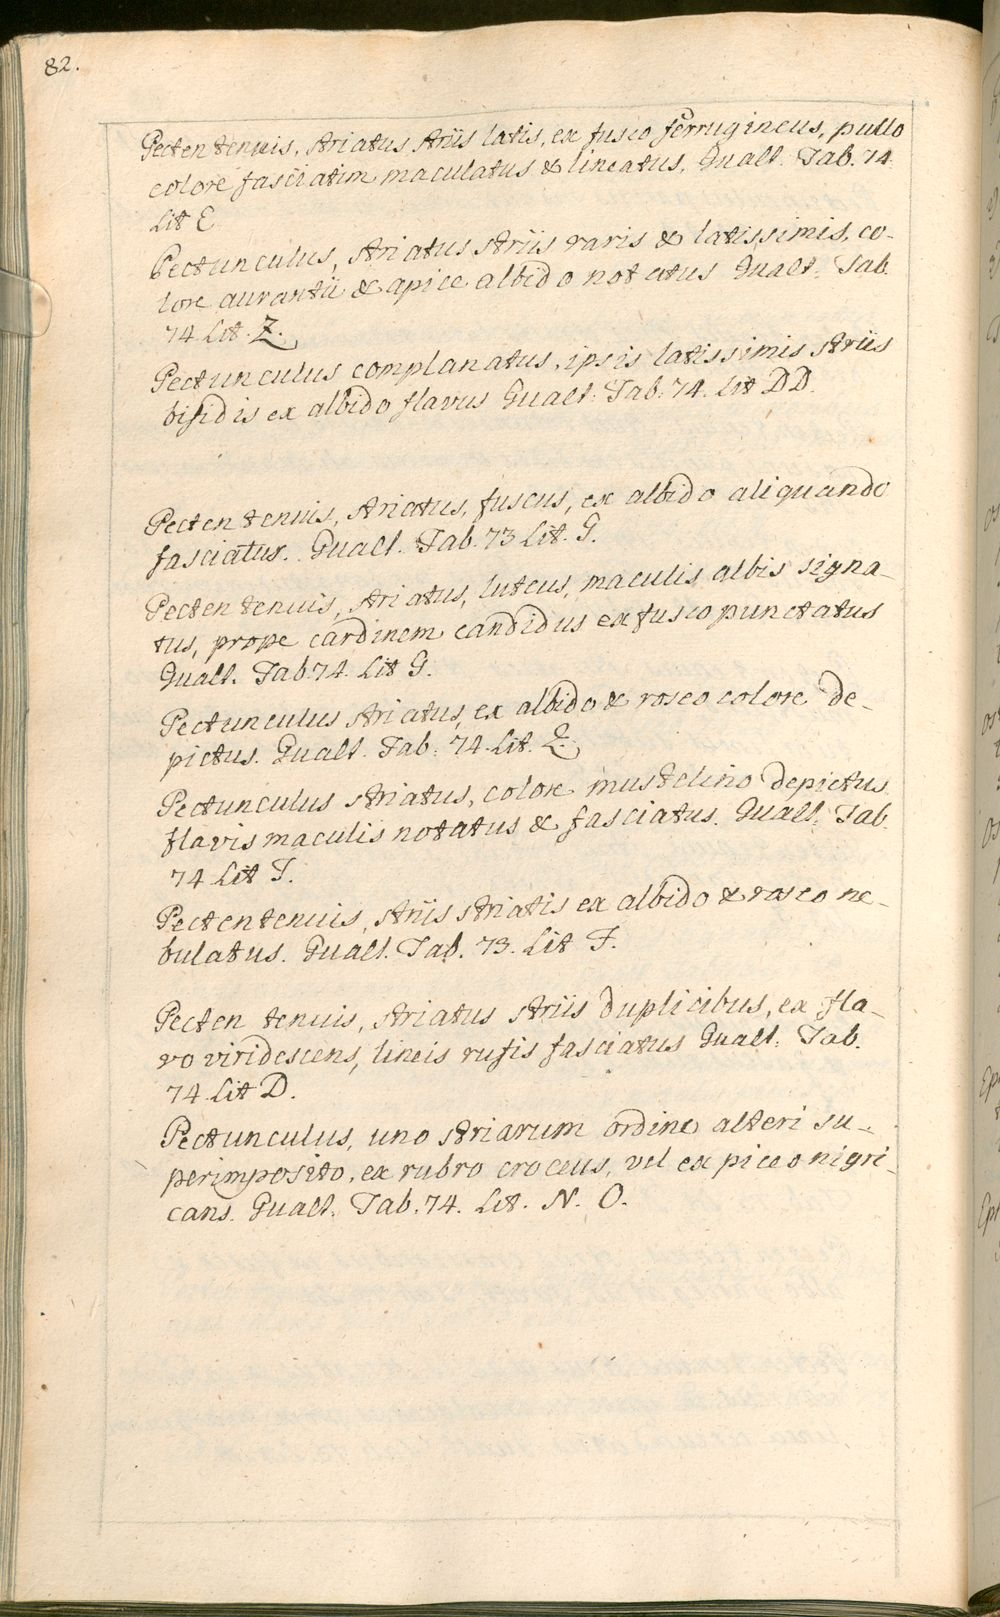 82.
Pecten tenuis, striatus striis latis, ex fusco ferrugineus, pullo
colore fasciatim maculatus & lineatus, Gualt. Tab. 74
Lit E
Pectunculus, striatus striis raris & latissimis, co-
lore aurantii & apice albido notatus Gualt. Tab.
74 Lit. Z.
Pectunculus complanatus, ipsis latissimis striis
bifidis ex albido flavus Gualt. Tab. 74. Lit DD.
Pecten tenuis, striatus, fuscus, ex albido aliquando
fasciatus. Gualt. Tab. 73 Lit. G.
Pecten tenuis, striatus, luteus, maculis albis signa-
tus, prope cardinem candidus ex fusco punctatus
Gualt. Tab 74. Lit G.
Pectunculus striatus, ex albido & roseo colore de-
pictus. Gualt. Tab. 74. Lit.
Pectunculus striatus, colore mustelino depictus
flavis maculis notatus & fasciatus. Gualt. Tab.
74 Lit T.
Pecten tenuis, striis striatis ex albido & roseo ne-
bulatus. Gualt. Tab. 73. Lit F.
Pecten tenuis, striatus striis duplicibus, ex fla-
vo viridescens, lineis rufis fasciatus Gualt. Tab.
74 Lit D.
Pectunculus, uno striarum ordine alteri su-
perimposito, ex rubro croceus, vel ex piceo nigri-
cans. Gualt. Tab. 74. Lit. N. O.